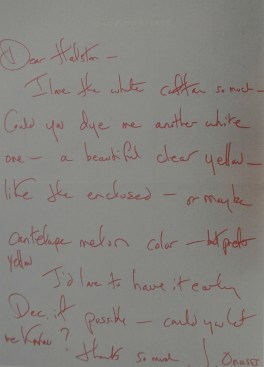 Dear Halston —
I love the white caftan so much —
Could you dye me another white
one — a beautiful clear yellow —
like the enclosed — or maybe
cantelope melon color — but prefer
yellow
I'd love to have it early
Dec. if possible — could you let
me know?
Thanks so much J. Onassis